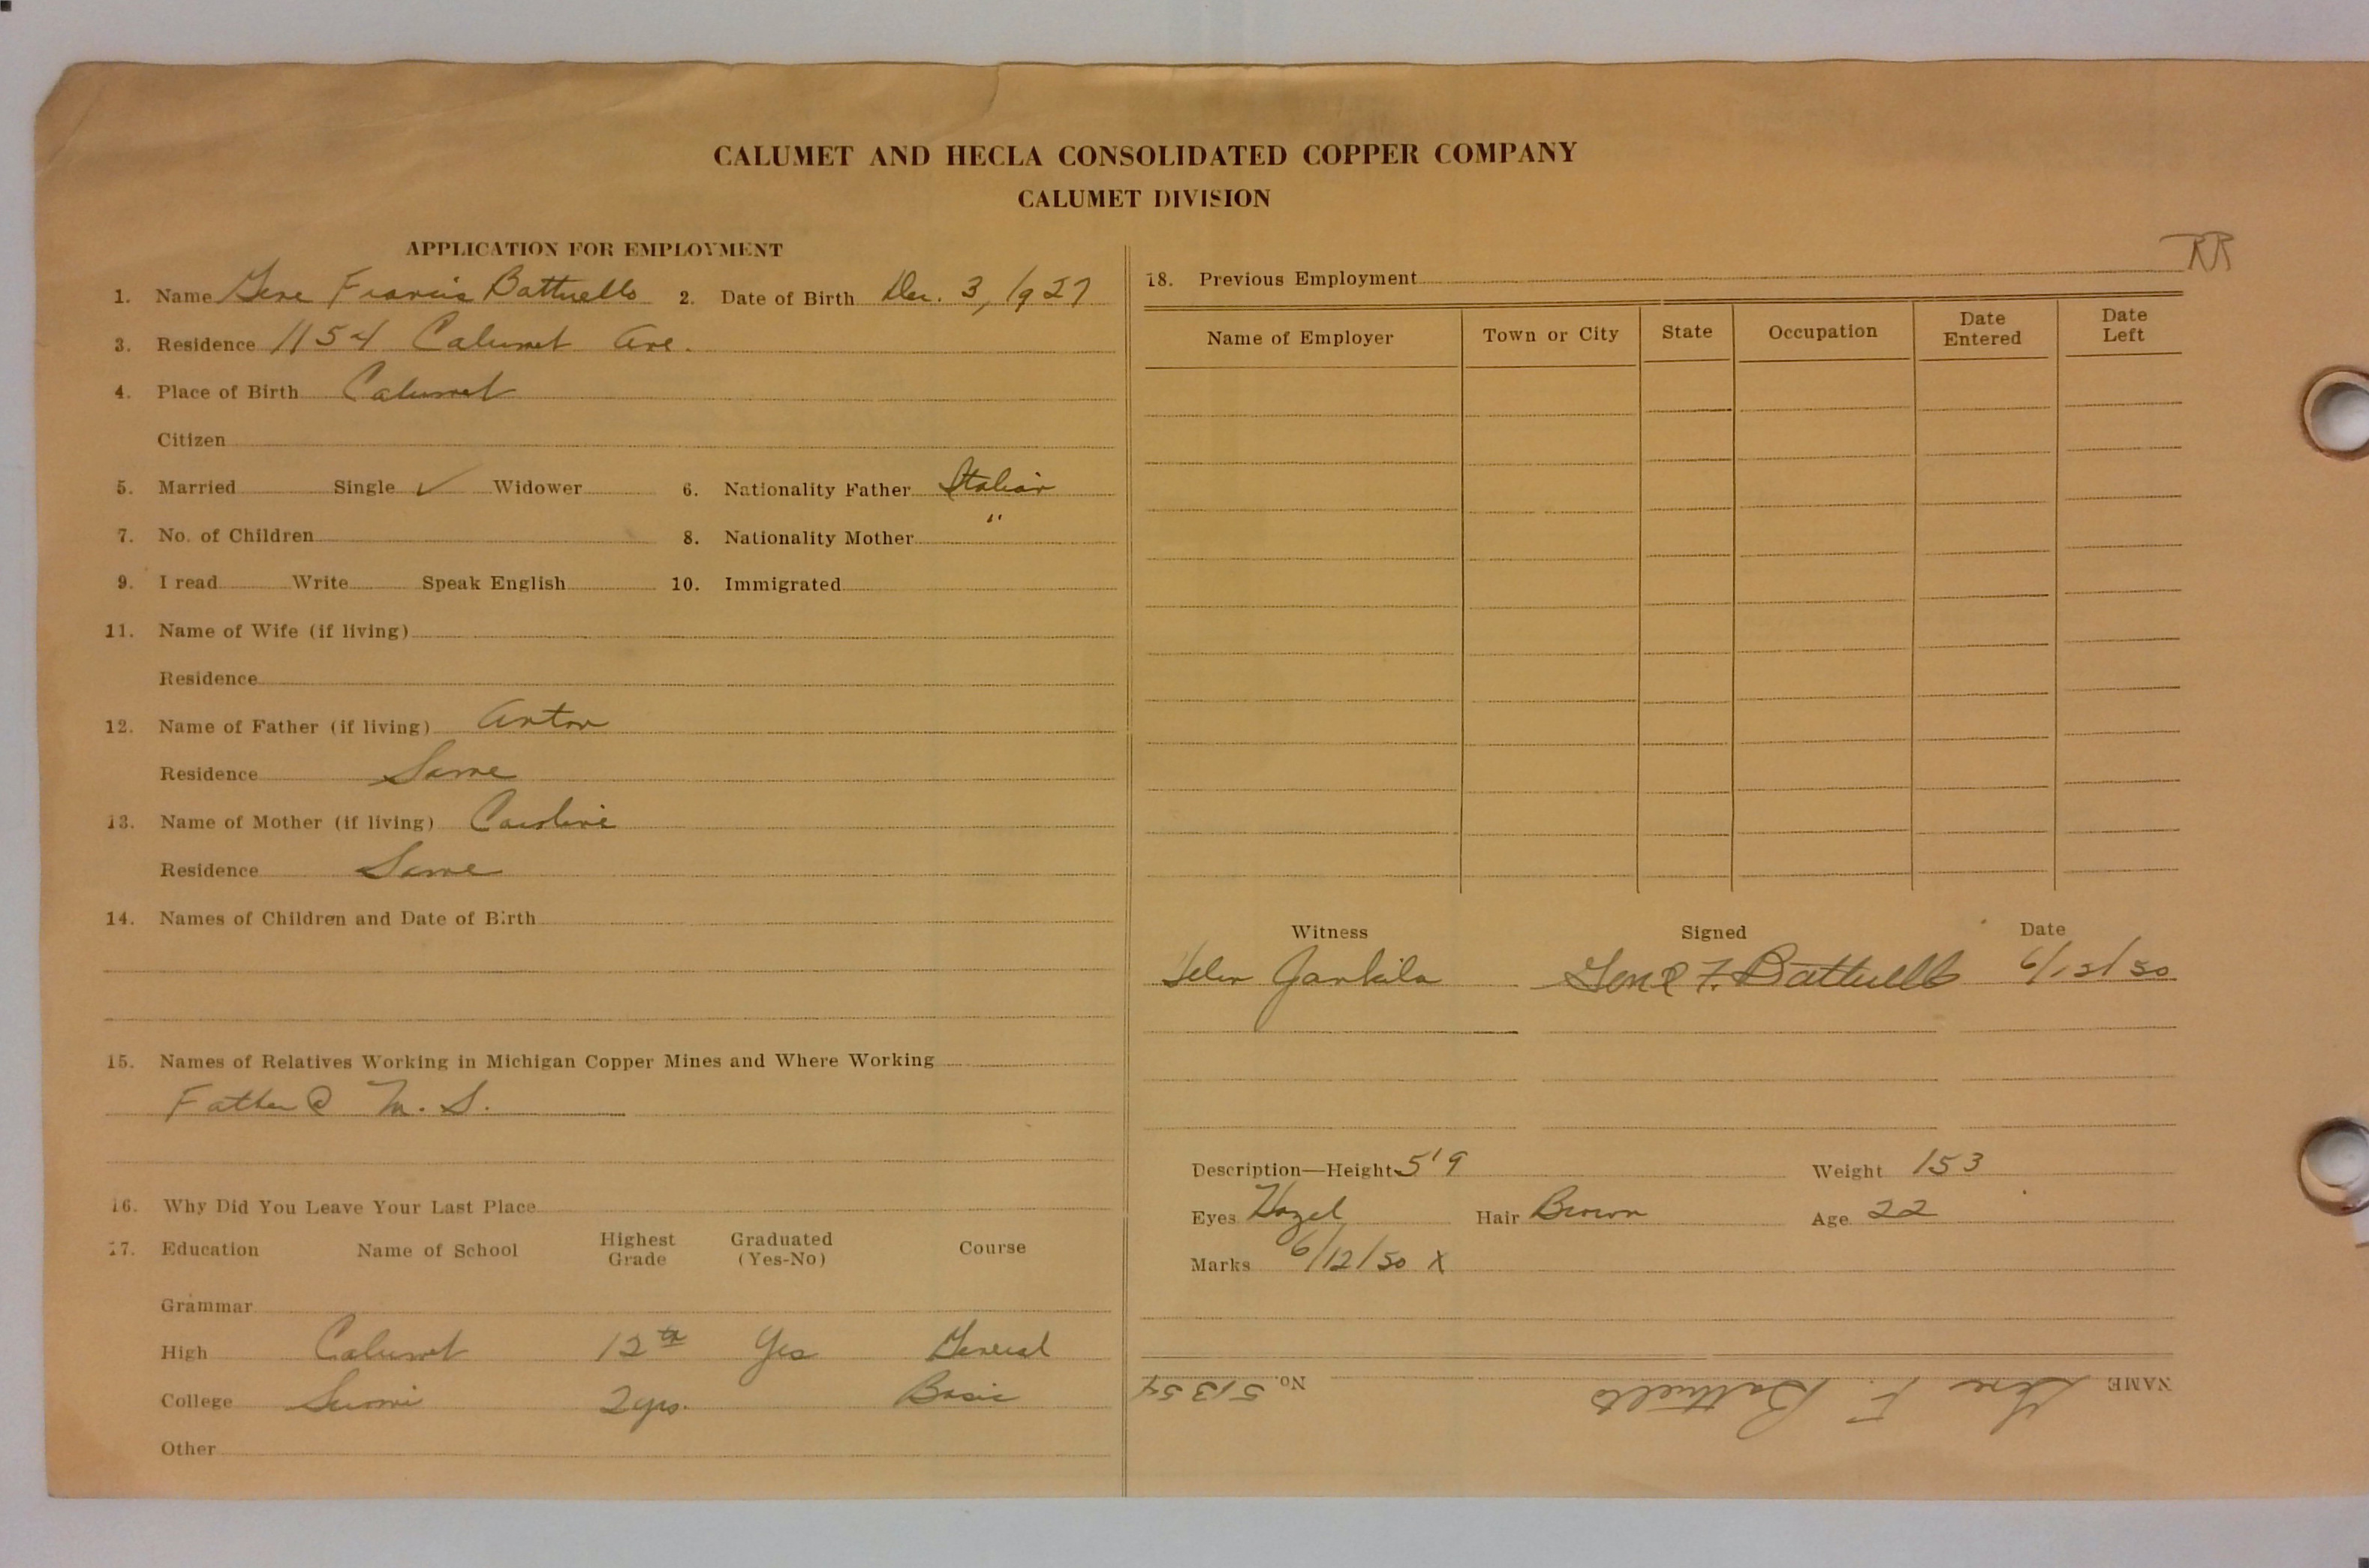 CALUMET AND HECLA CONSOLIDATED COPPER COMPANY
CALUMET DIVISION
APPLICATION FOR EMPLOYMENT
1. Name Gene Francis Battuello 2. Date of Birth Dec. 3, 1927
3. Residence 1154 Calumet Ave.
4. Place of Birth Calumet
Citizen
5. Married Single ✓ Widower 6. Nationality Father Italian
7. No. of Children 8. Nationality Mother "
9. I read Write Speak English 10. Immigrated
11. Name of Wife (if living)
Residence
12. Name of Father (if living) Anton
Residence Same
13. Name of Mother (if living) Caroline
Residence Same
14. Names of Children and Date of Birth
15. Names of Relatives Working in Michigan Copper Mines and Where Working
Father @ M. S.
16. Why Did You Leave Your Last Place
17. Education Name of School Highest Grade Graduated (Yes-No) Course
Grammar
High Calumet 12th Yes General
College Suomi 2 yrs. Basic
Other
RR
18. Previous Employment
Name of Employer Town or City State Occupation Date Entered Date Left
Witness Signed Date
Helen Jarkila Gene F. Battuello 6/12/50
Description—Height 5'9 Weight 153
Eyes Hazel Hair Brown Age 22
Marks 6/12/50 X
NAME Gene F. Battuello No. 51354